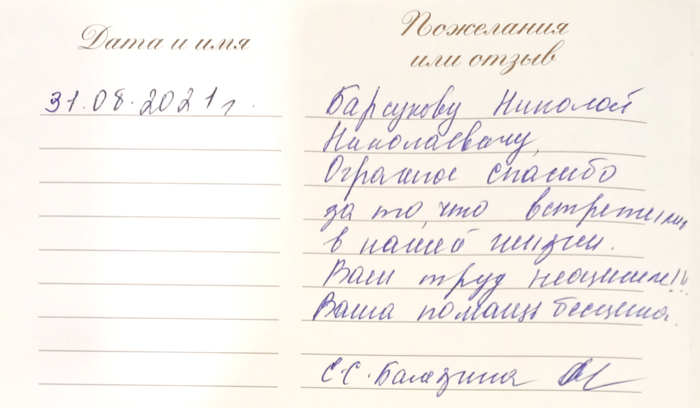 Дата и имя
Пожелания
или отзыв
31.08.2021г.
Барсукову Николой
Николаевичу,
Ограмное спасибо
за то, что встретились
в нашей жизни.
Ваш труд неоценим!!
Ваша помощь бесценна.
С.С. Балезина